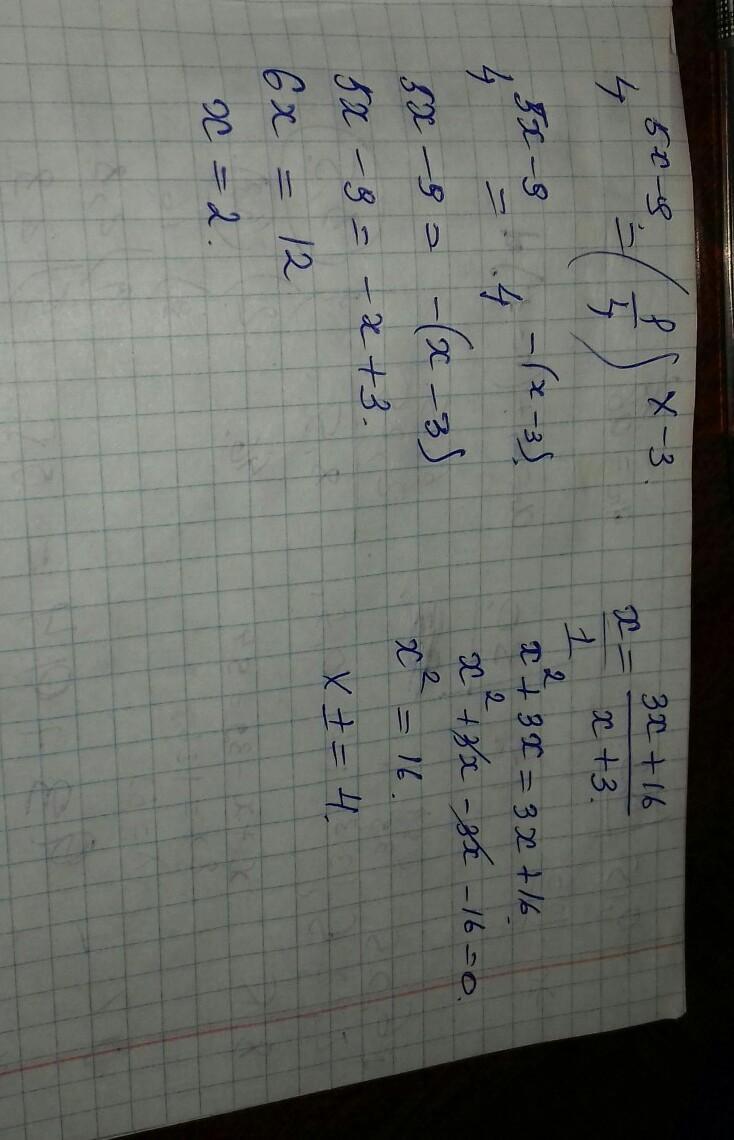 4^5x-9 = (1/4)^x-3.
4^5x-9 = 4^-(x-3).
5x-9 = -(x-3)
5x-9 = -x+3.
6x = 12
x = 2.
x/1 = 3x+16/x+3.
x²+3x = 3x+16.
x²+3x-3x-16=0.
x² = 16.
x ± = 4.